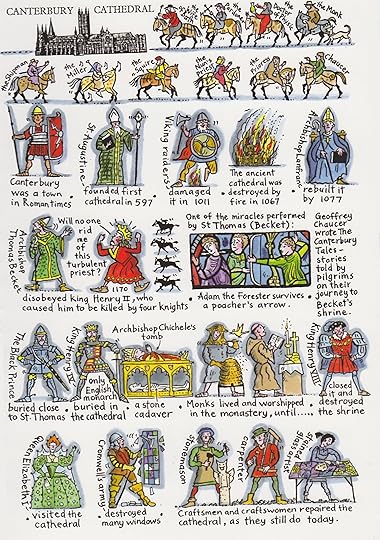 CANTERBURY CATHEDRAL
the Monk
the Shipman
the Miller
the Squire
the
the
Chaucer
Canterbury
was a town
in Roman times
St Augustine
founded first
cathedral in 597
Viking raiders
damaged
it in 1011
The ancient
cathedral was
destroyed by
fire in 1067
Archbishop Lanfranc
rebuilt it
by 1077
Archbishop
Thomas Becket
Will no one
rid me
of this
turbulent
priest?
1170
disobeyed King Henry II, who
caused him to be killed by four knights
One of the miracles performed
by St Thomas (Becket):
• Adam the Forester survives
a poacher's arrow.
Geoffrey
Chaucer
wrote The
Canterbury
Tales -
stories
told by
pilgrims
on their
journey to
Becket's
shrine.
The Black Prince
buried close
to St Thomas
King Henry IV
only
English
monarch
buried in
the cathedral
Archbishop Chichele's
tomb
a stone
cadaver
Monks lived and worshipped
in the monastery, until.....
King Henry VIII
closed
it and
destroyed
the shrine
Queen Elizabeth I
visited the
cathedral
Cromwell's army
destroyed
many windows
stonemason
carpenter
stained
glass artist
Craftsmen and craftswomen repaired the
cathedral, as they still do today.